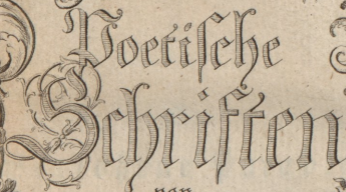 Poetiſche
Schriften
von